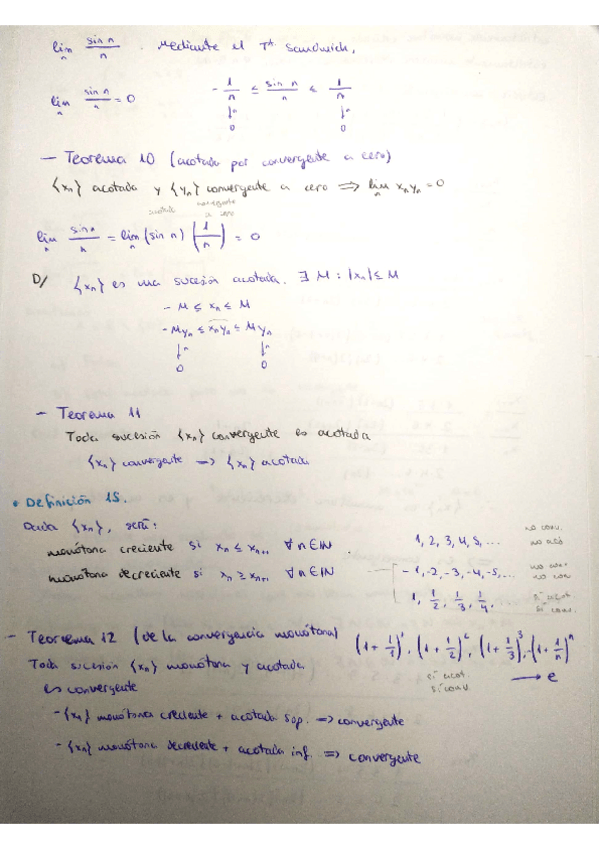 lim_n sin n / n . Mediante el Tª Sandwich,
lim_n sin n / n = 0    - 1/n ≤ sin n / n ≤ 1/n
↓n ↓n
0 0
- Teorema 10 (acotada por convergente a cero)
{xₙ} acotada y {yₙ} convergente a cero ⟹ lim_n xₙyₙ = 0
acotada convergente a cero
lim_n sin n / n = lim_n (sin n) (1/n) = 0
D/ {xₙ} es una sucesión acotada. ∃ M : |xₙ| ≤ M
- M ≤ xₙ ≤ M
- Myₙ ≤ xₙyₙ ≤ Myₙ
↓n ↓n
0 0
- Teorema 11
Toda sucesión {xₙ} convergente es acotada
{xₙ} convergente ⟹ {xₙ} acotada
• Definición 15.
Dada {xₙ}, será:
monótona creciente si xₙ ≤ xₙ₊₁ ∀n∈ℕ
1, 2, 3, 4, 5, ... no conv.
monótona decreciente si xₙ ≥ xₙ₊₁ ∀n∈ℕ
-1, -2, -3, -4, -5, ...
1, 1/2, 1/3, 1/4, sí acot.
sí conv.
- Teorema 12 (de la convergencia monótona)
(1 + 1/1)¹, (1 + 1/2)², (1 + 1/3)³, ... (1 + 1/n)ⁿ
Toda sucesión {xₙ} monótona y acotada
es convergente
sí acot.
sí conv. ⟶ e
- {xₙ} monótona creciente + acotada sup. ⟹ convergente
- {xₙ} monótona decreciente + acotada inf. ⟹ convergente